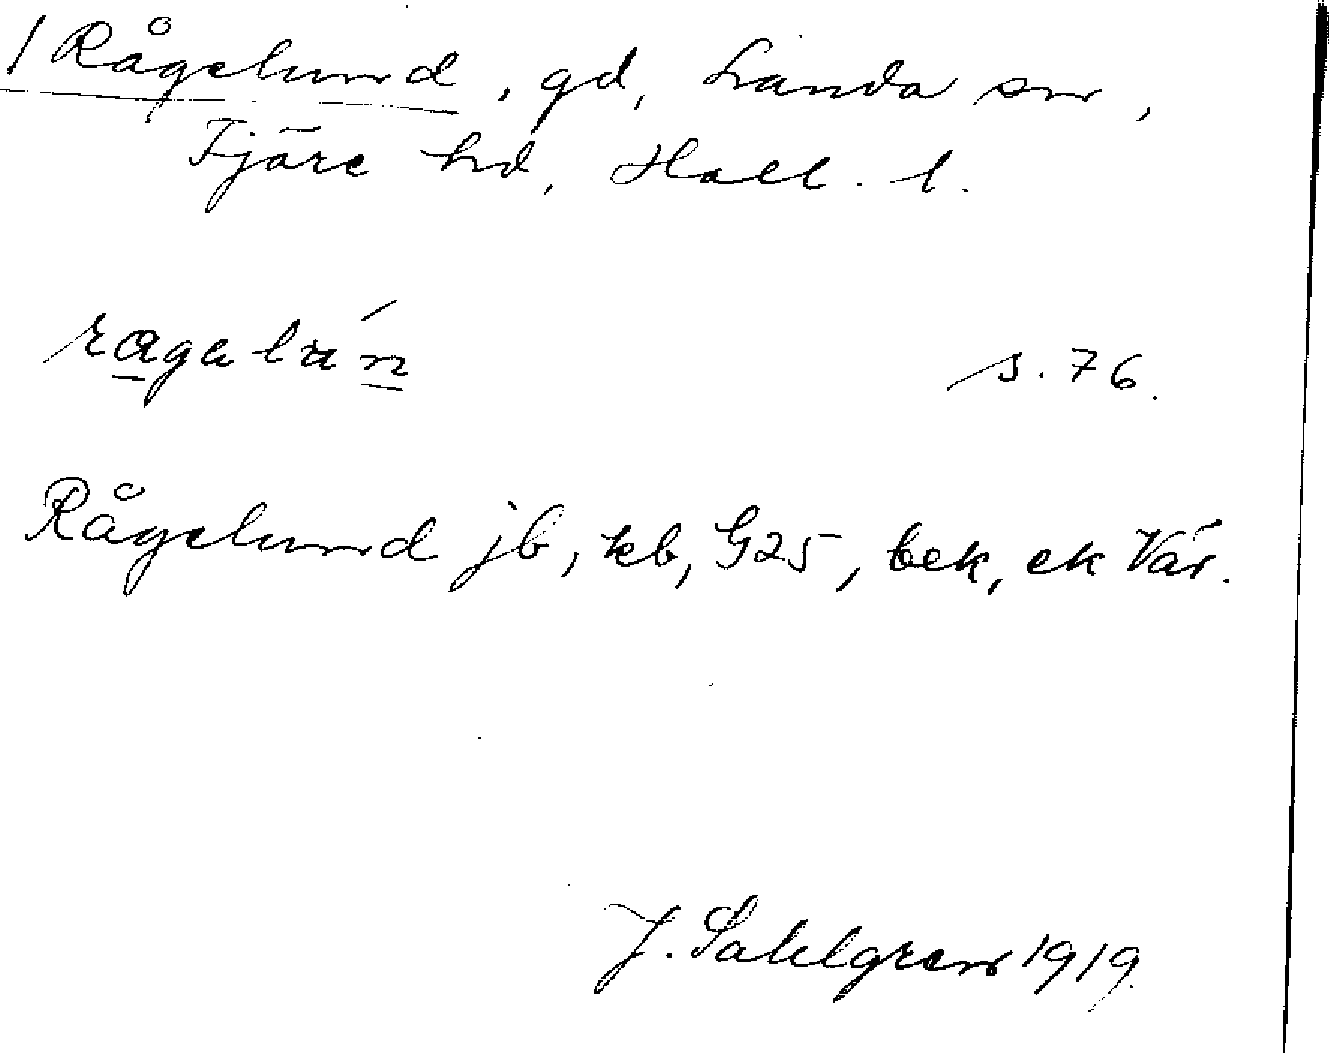 / Rågelund, gd, Landa sn,
Fjäre hd, Hall. l.
s. 76.
Rågelund jb, kb, G25, bek, ek Vär.
J. Sahlgren 1919